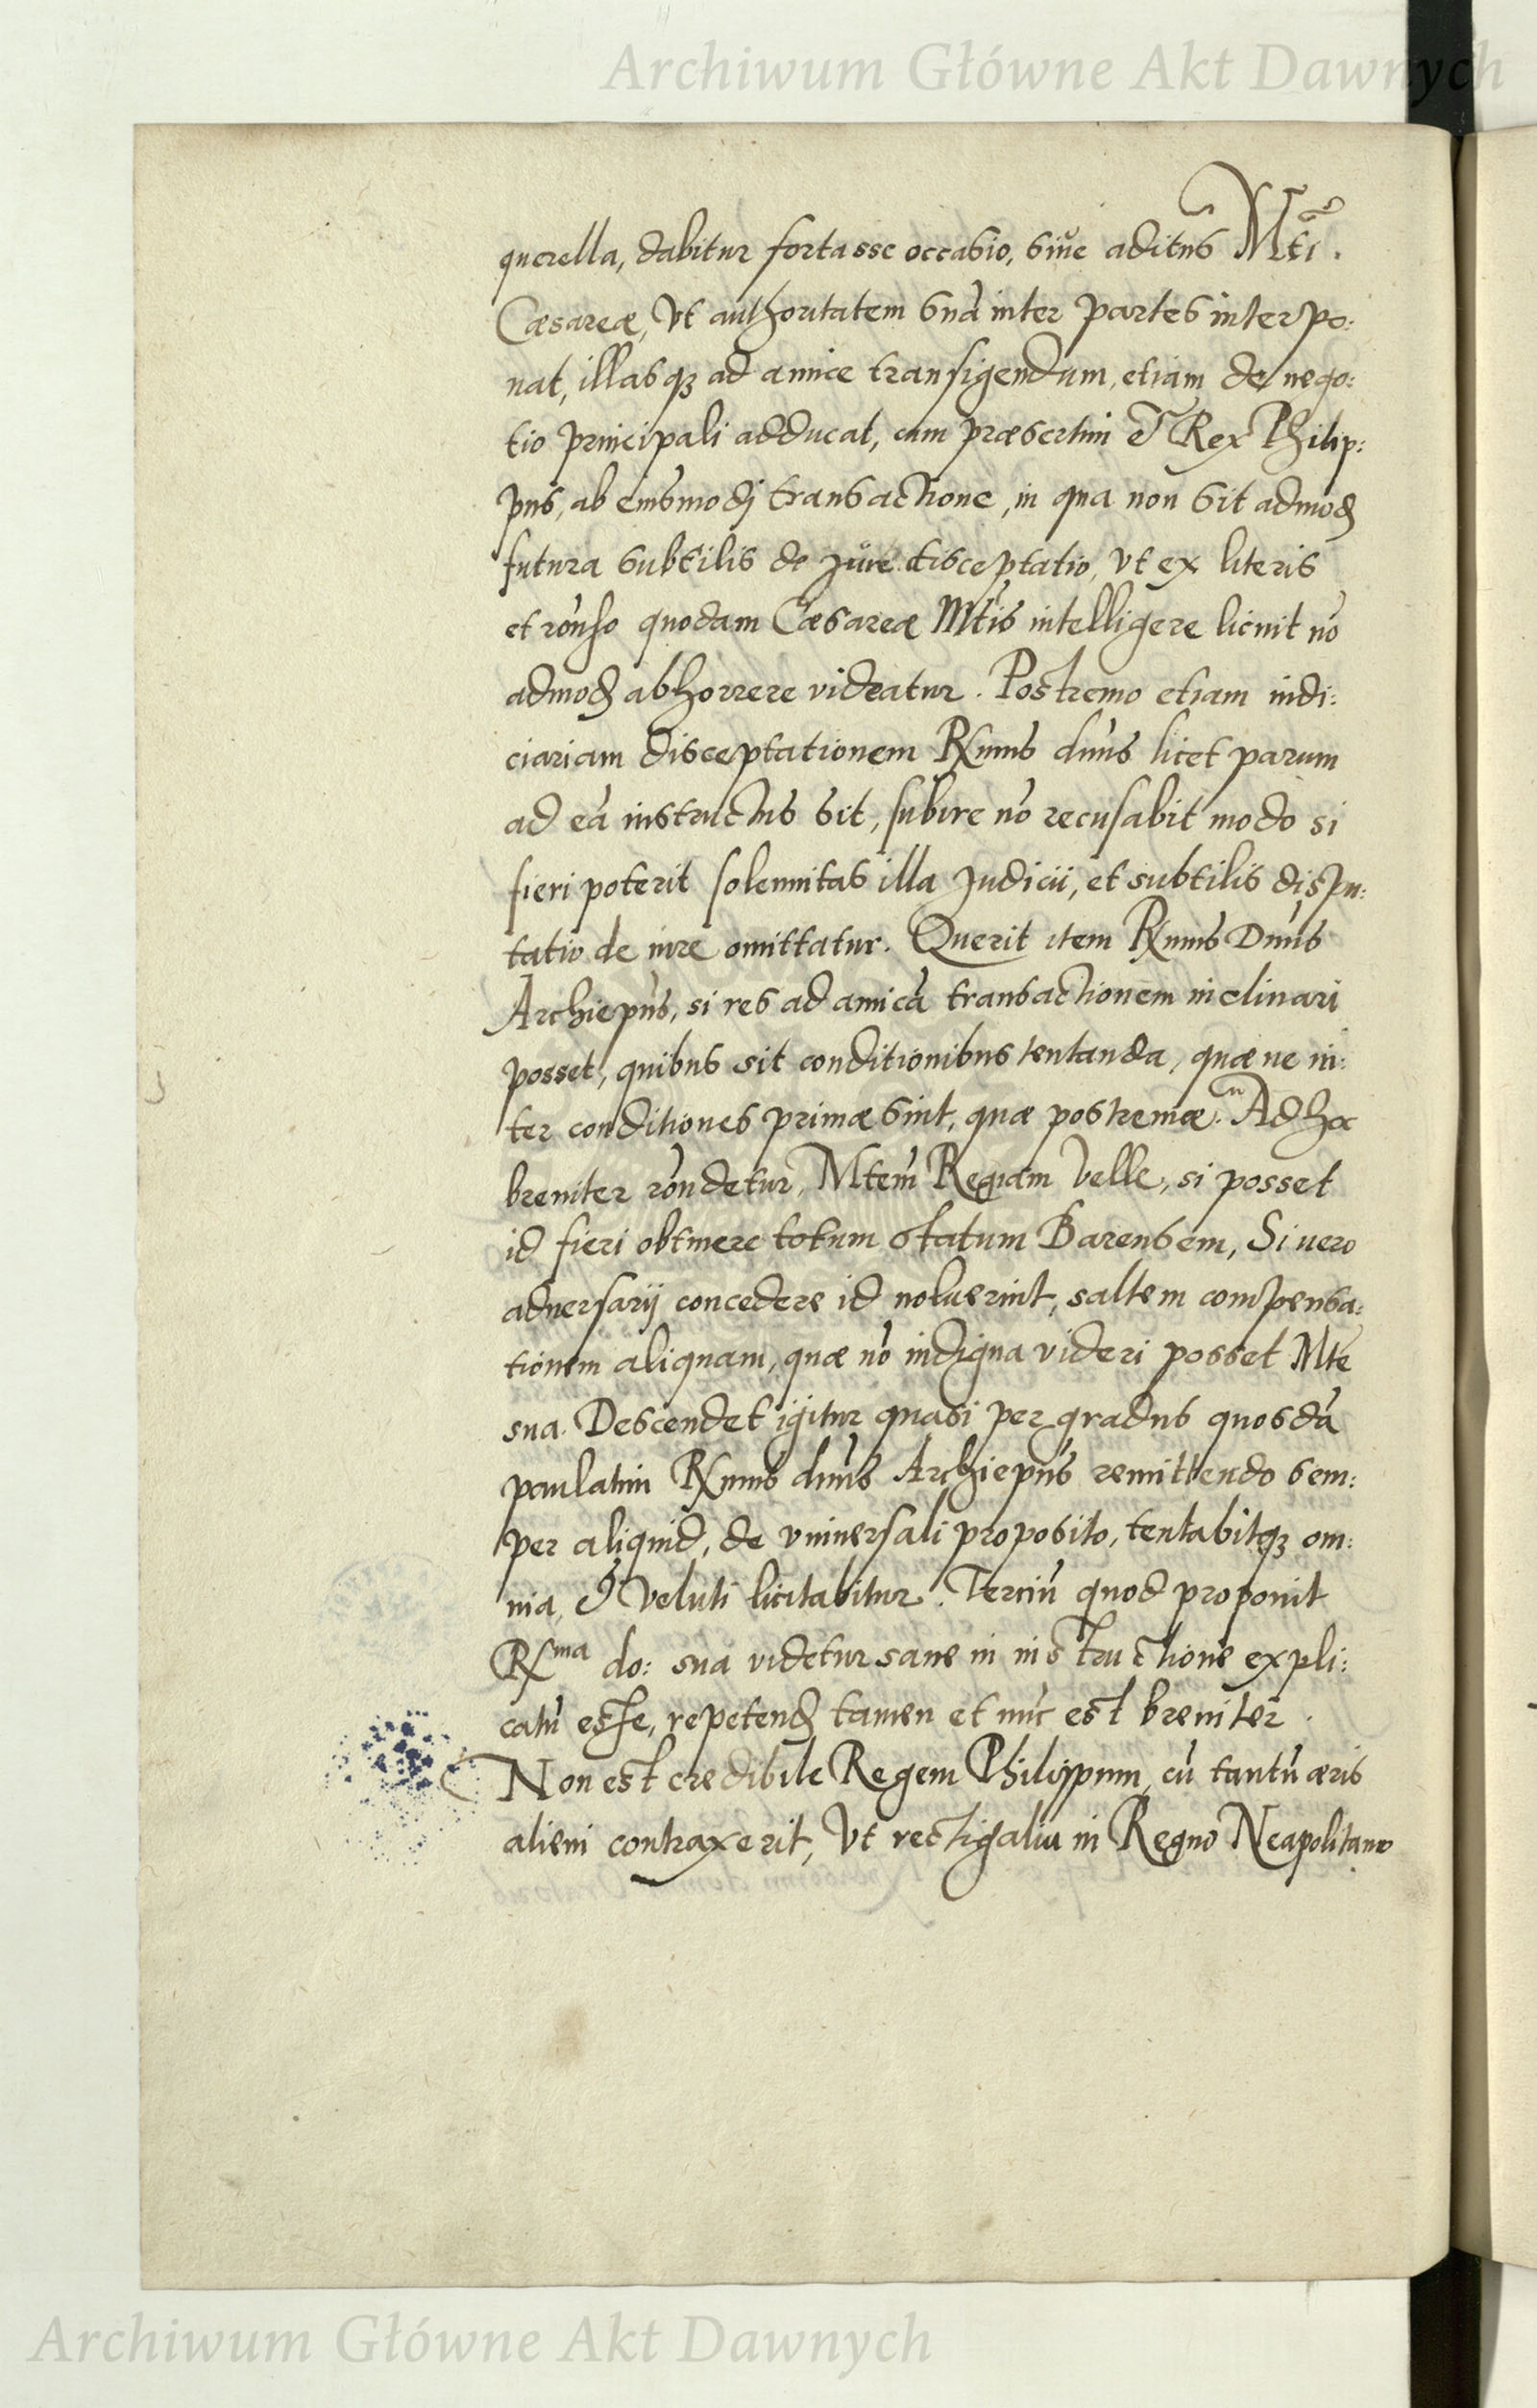 Archiwum Główne Akt Dawnych
querella, dabitur fortasse occasio, siue aditus Mti.
Cæsareæ, Vt authoritatem suā inter partes interpo:
nat, illasqꝫ ad amice transigendum, etiam de nego:
tio principali adducat, cum præsertim et Rex Philip:
pus, ab eiusmodj transactione, in qua non sit admoḋ
futura subtilis de jure disceptatio, Vt ex literis
et rōnso quodam Cæsareæ Mtis intelligere licuit nō
admoḋ abhorrere videatur. Postremo etiam indi:
ciariam disceptationem Rxmus dnus licet parum
ad eā instructus sit, subire nō recusabit modo si
fieri poterit solennitas illa Judicii, et subtilis dispu:
tatio de iure omittatur. Querit item Rxmus Dnus
Archiepūs, si res ad amicā transactionem inclinari
posset, quibus sit conditionibus tentanda, quæ ne in:
ter conditiones primæ sint, quæ postremæ. Ad hæc
breuiter rōndetur, Mtem Regiam Velle, si posset
id fieri obtinere totum statum Barensem, Si uero
aduersarij concedere id noluerint, saltem compensa:
tionem aliquam, quæ nō indigna videri posset Mte
sua. Descendet igitur quasi per gradus quosdā
paulatim Rxmus dnus Archiepūs remittendo sem:
per aliquid, de vniuersali proposito, tentabitqꝫ om:
nia, et Veluti licitabitur. Terciū quod proponit
Rxma do: sua videtur sane in instructione expli:
catū esse, repetenḋ tamen et nūc est breuiter.
Non est credibile Regem Philippum, cū tantū æris
alieni contraxerit, Vt vectigalia in Regno Neapolitano
Archiwum Główne Akt Dawnych